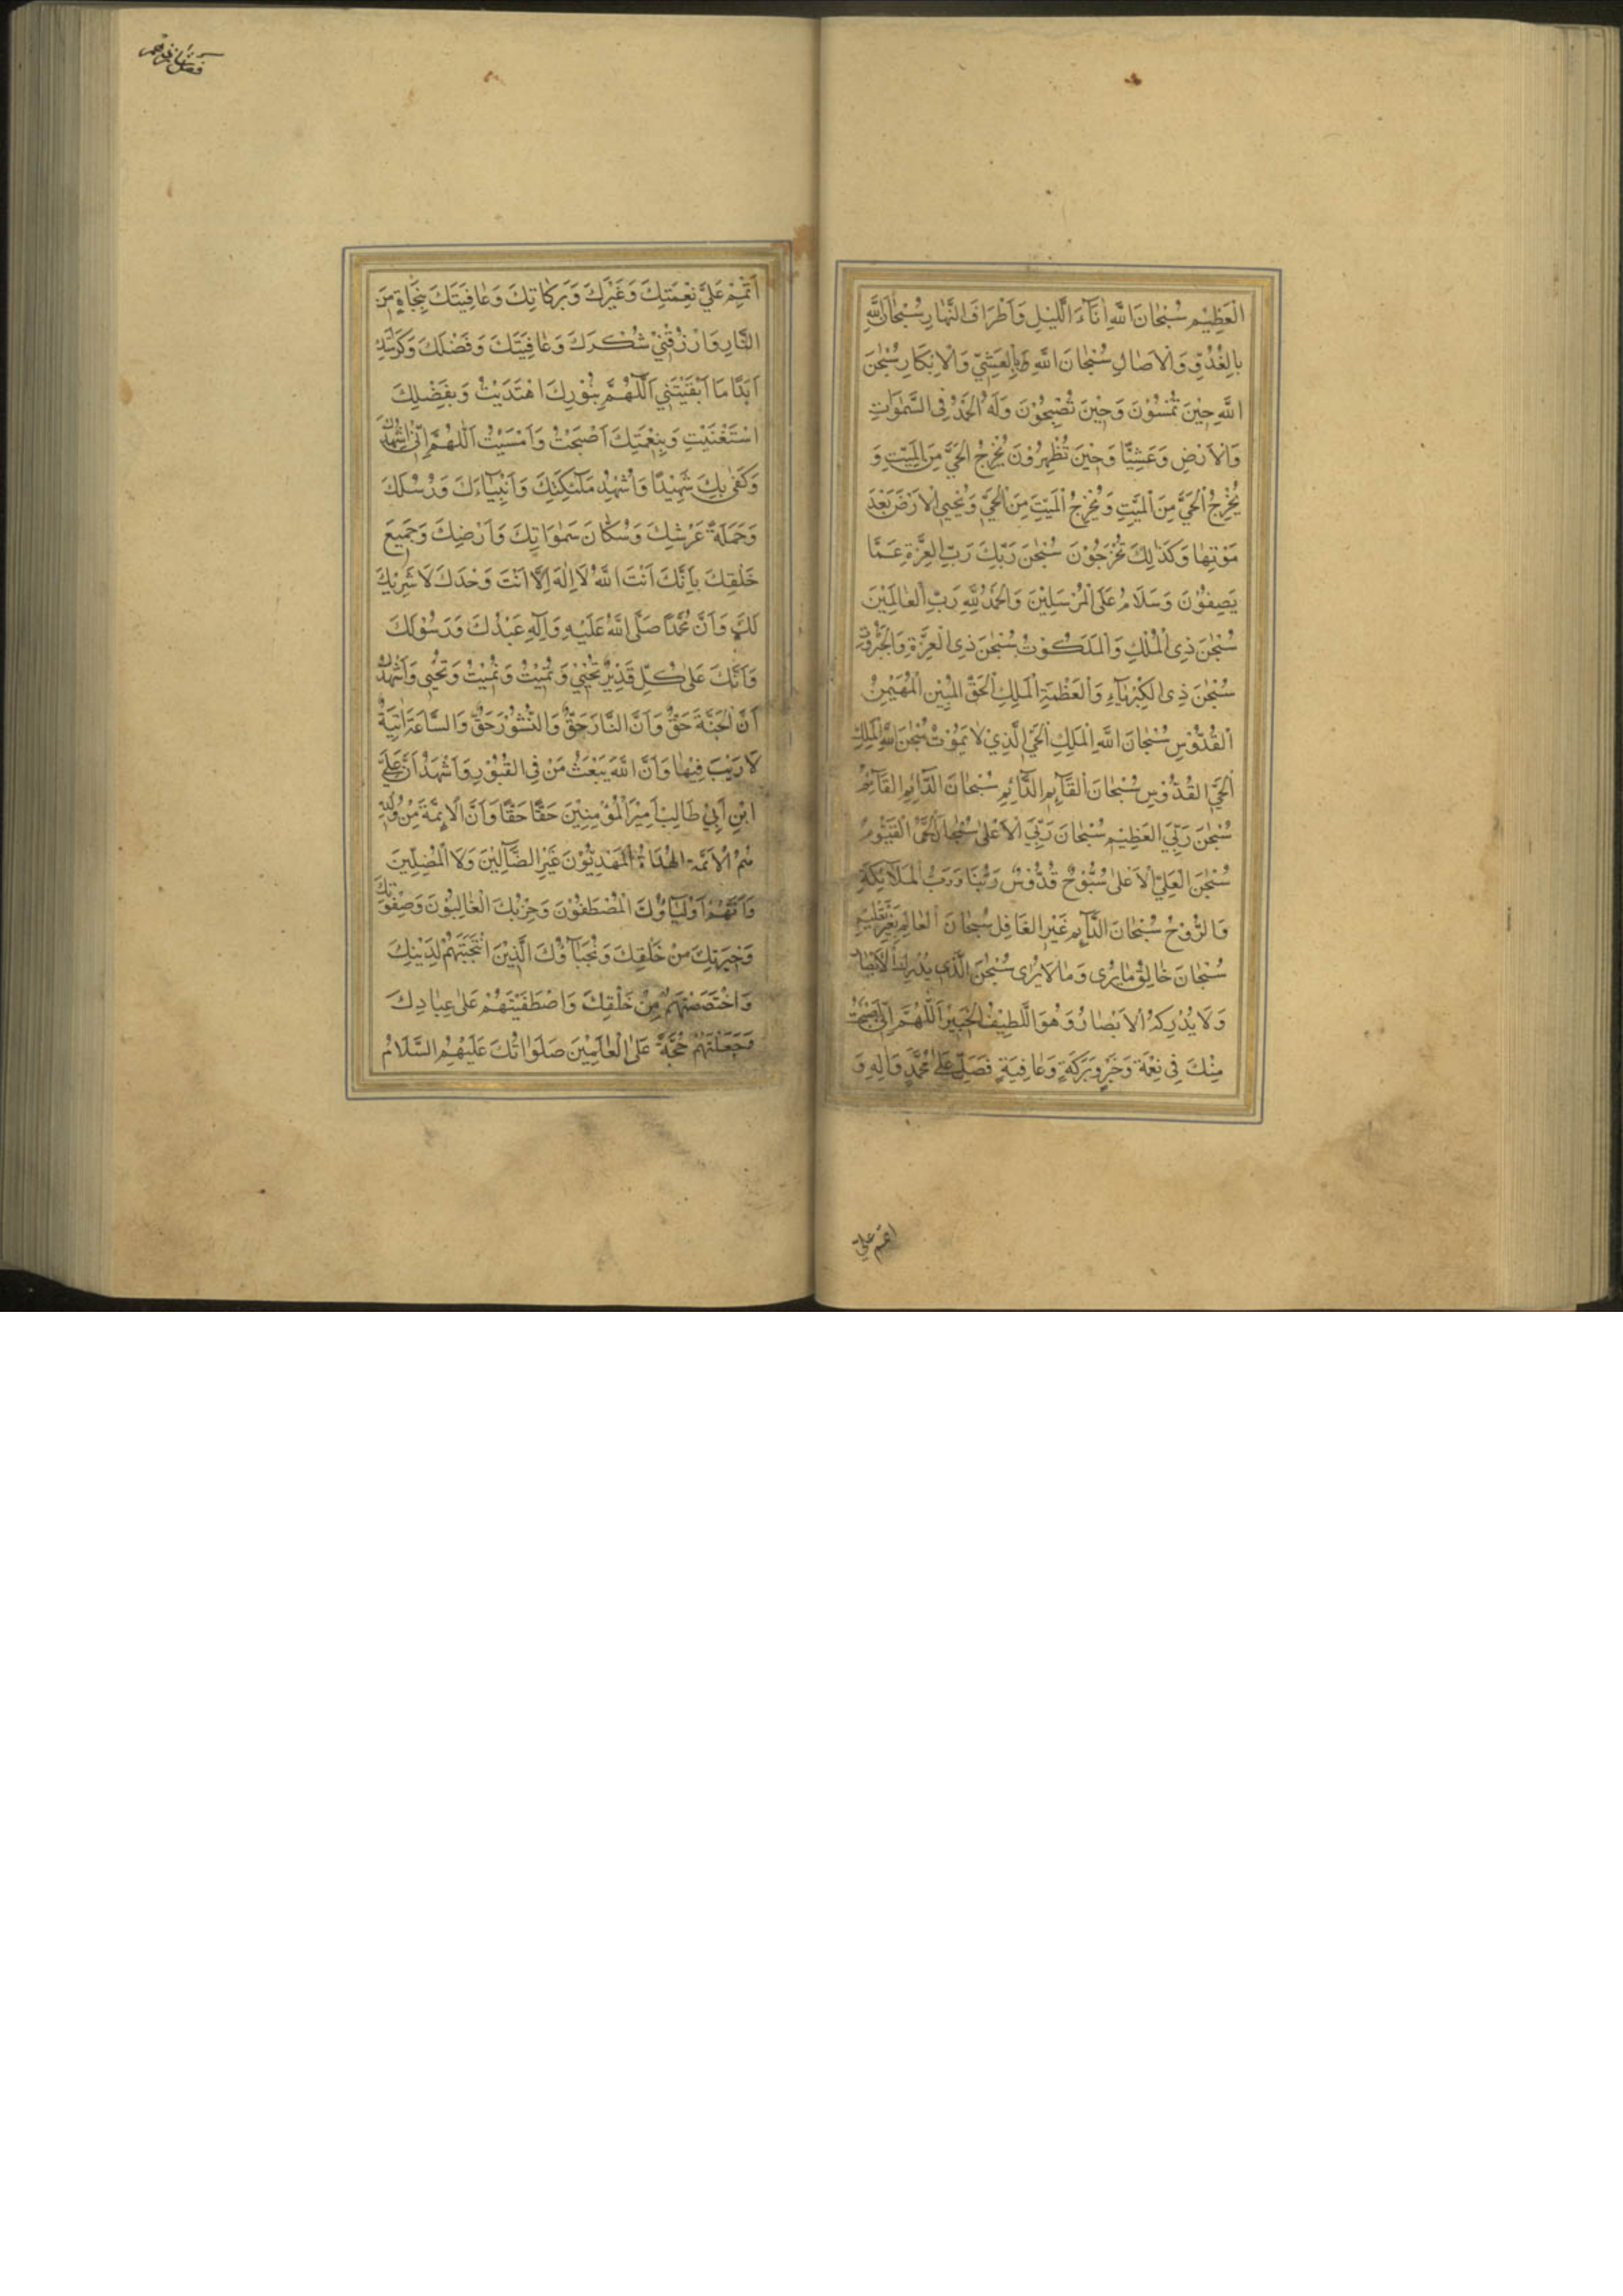 الْعَظِيْمِ سُبْحَانَ اللّٰهِ اٰنَآءَ الَّليْلِ وَاَطْرَافَ النَّهٰارِ سُبْحٰانَ اللّٰهِ
بِالْغُدُوِّ وَالْاٰصٰالِ سُبْحٰانَ اللّٰهِ بِالْعَشِيِّ وَالْاِبْكَارِ سُبْحٰنَ
اللّٰهِ حِيْنَ تُمْسُوْنَ وَحِيْنَ تُصْبِحُوْنَ وَلَهُ الْحَمْدُ فِى السَّمٰوَاتِ
وَالْاَرْضِ وَعَشِيًّا وَحِيْنَ تُظْهِرُوْنَ يُخْرِجُ الْحَيَّ مِنَ الْمَيِّتِ وَ
يُخْرِجُ الْحَيَّ مِنَ الْمَيِّتِ وَيُخْرِجُ الْمَيِّتَ مِنَ الْحَيِّ وَيُحْيِي الْاَرْضَ بَعْدَ
مَوْتِهٰا وَكَذٰلِكَ تُخْرَجُوْنَ سُبْحٰنَ رَبِّكَ رَبِّ الْعِزَّةِ عَمَّا
يَصِفُوْنَ وَسَلَامٌ عَلَى الْمُرْسَلِيْنَ وَالْحَمْدُ لِلّٰهِ رَبِّ الْعٰالَمِيْنَ
سُبْحٰنَ ذِى الْمُلْكِ وَالْمَلَكُوْتِ سُبْحٰنَ ذِى الْعِزَّةِ وَالْجَبَرُوْتِ
سُبْحٰنَ ذِى الْكِبْرِيٰآءِ وَالْعَظَمَةِ الْمَلِكِ الْحَقِّ الْمُبِيْنِ الْمُهَيْمِنِ
الْقُدُّوْسِ سُبْحٰانَ اللّٰهِ الْمَلِكِ الْحَيِّ الَّذِيْ لَا يَمُوْتُ سُبْحٰنَ اللّٰهِ الْمَلِكِ
الْحَيِّ الْقُدُّوْسِ سُبْحٰانَ الْقَآئِمِ الدَّآئِمِ سُبْحٰانَ الدَّآئِمِ الْقَآئِمِ
سُبْحٰنَ رَبِّيَ الْعَظِيْمِ سُبْحٰانَ رَبِّيَ الْاَعْلٰى سُبْحٰانَ الْحَيِّ الْقَيُّوْمِ
سُبْحٰنَ الْعَلِيِّ الْاَعْلٰى سُبُّوْحٌ قُدُّوْسٌ رَبُّنَا وَرَبُّ الْمَلَآئِكَةِ
وَالرُّوْحِ سُبْحٰانَ الدَّآئِمِ غَيْرِ الْغَافِلِ سُبْحٰانَ الْعٰالِمِ بِغَيْرِ تَعْلِيْمٍ
سُبْحٰانَ خٰالِقِ مٰا يُرٰى وَمٰا لَا يُرٰى سُبْحٰنَ الَّذِي يُدْرِكُ الْاَبْصٰارَ
وَلَا يُدْرِكُهُ الْاَبْصٰارُ وَهُوَ اللَّطِيْفُ الْخَبِيْرُ اَللّٰهُمَّ اِنِّي اَصْبَحْتُ
مِنْكَ فِي نِعْمَةٍ وَخَيْرٍ وَبَرَكَةٍ وَعٰافِيَةٍ فَصَلِّ عَلٰى مُحَمَّدٍ وَاٰلِهِ وَ
اتمم علیّ
اَتْمِمْ عَلَيَّ نِعْمَتِكَ وَغَيْرَكَ وَبَرَكٰاتِكَ وَعٰافِيَتَكَ بِنَجَاةٍ مِنَ
النَّارِ وَارْزُقْنِيْ شُكْرَكَ وَعٰافِيَتَكَ وَفَضْلَكَ وَكَرٰامَتَكَ
اَبَدًا مَا اَبْقَيْتَنِي اَللّٰهُمَّ بِنُوْرِكَ اهْتَدَيْتُ وَبِفَضْلِكَ
اسْتَغْنَيْتُ وَبِنِعْمَتِكَ اَصْبَحْتُ وَاَمْسَيْتُ اَللّٰهُمَّ اِنِّي اُشْهِدُكَ
وَكَفٰى بِكَ شَهِيْدًا وَاُشْهِدُ مَلٰٓئِكَتَكَ وَاَنْبِيٰآءَكَ وَرُسُلَكَ
وَحَمَلَةَ عَرْشِكَ وَسُكَّانَ سَمٰوَاتِكَ وَاَرْضِكَ وَجَمِيْعَ
خَلْقِكَ بِاَنَّكَ اَنْتَ اللّٰهُ لَا اِلٰهَ اِلَّا اَنْتَ وَحْدَكَ لَا شَرِيْكَ
لَكَ وَاَنَّ مُحَمَّدًا صَلَّى اللّٰهُ عَلَيْهِ وَاٰلِهِ عَبْدُكَ وَرَسُوْلُكَ
وَاَنَّكَ عَلٰى كُلِّ قَدِيْرٌ تُحْيِيْ وَتُمِيْتُ وَتُمِيْتُ وَتُحْيِي وَاَشْهَدُ
اَنَّ الْجَنَّةَ حَقٌّ وَاَنَّ النَّارَ حَقٌّ وَالنُّشُوْرَ حَقٌّ وَالسَّاعَةَ اٰتِيَةٌ
لَا رَيْبَ فِيْهٰا وَاَنَّ اللّٰهَ يَبْعَثُ مَنْ فِي الْقُبُوْرِ وَاَشْهَدُ اَنَّ عَلِيَّ
ابْنَ اَبِيْ طَالِبٍ اَمِيْرُ الْمُؤْمِنِيْنَ حَقًّا حَقًّا وَاَنَّ الْاَئِمَّةَ مِنْ وُلْدِهِ
هُمُ الْاَئِمَّةُ الْهُدَاةُ الْمَهْدِيُّوْنَ غَيْرُ الضَّآلِّيْنَ وَلَا الْمُضِلِّيْنَ
وَاَنَّهُمْ اَوْلِيٰآؤُكَ الْمُصْطَفُوْنَ وَحِزْبُكَ الْغٰالِبُوْنَ وَصِفْوَتُكَ
وَخِيَرَتُكَ مِنْ خَلْقِكَ وَنُجَبٰآؤُكَ الَّذِيْنَ انْتَجَبْتَهُمْ لِدِيْنِكَ
وَاخْتَصَصْتَهُمْ مِنْ خَلْقِكَ وَاصْطَفَيْتَهُمْ عَلٰى عِبٰادِكَ
وَجَعَلْتَهُمْ حُجَّةً عَلَى الْعٰالَمِيْنَ صَلَوٰاتُكَ عَلَيْهِمْ السَّلَامُ